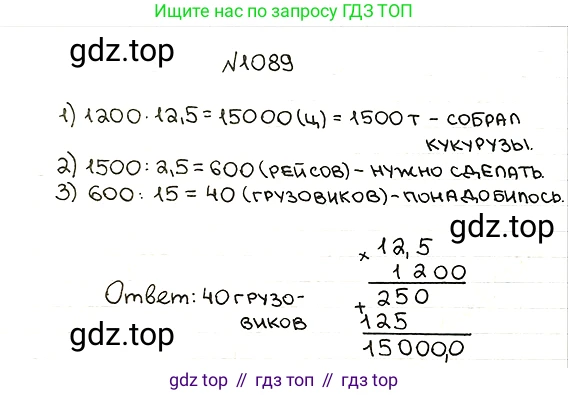 Ищите нас по запросу ГДЗ ТОП
gdz.top
№1089
1) 1200 · 12,5 = 15000 (ц) = 1500 т - СОБРАЛ
КУКУРУЗЫ.
2) 1500 : 2,5 = 600 (РЕЙСОВ) - НУЖНО СДЕЛАТЬ.
3) 600 : 15 = 40 (ГРУЗОВИКОВ) - ПОНАДОБИЛОСЬ.
gdz.top
× 12,5
1 200
+ 250
125
15000,0
Ответ: 40 ГРУЗО-
ВИКОВ
gdz.top
gdz top // гдз топ // гдз.top